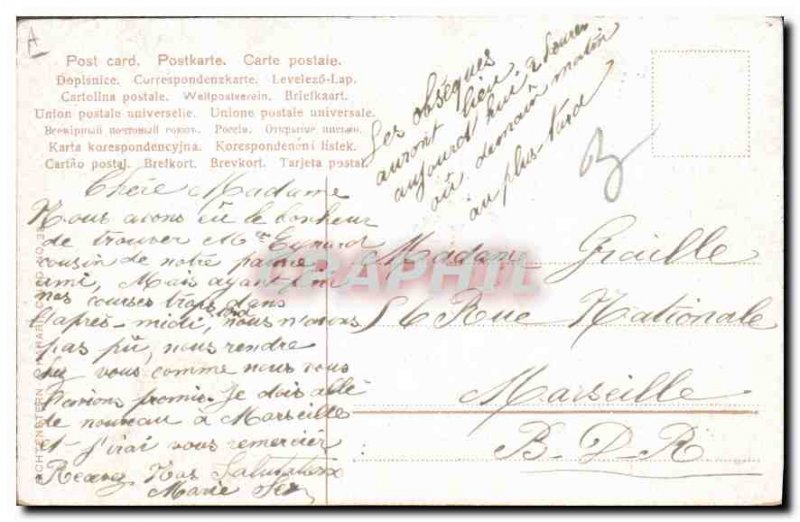 Post card. Postkarte. Carte postale.
Dopisnice. Correspondenzkarte. Levelező-Lap.
Cartolina postale. Weltpostverein. Briefkaart.
Union postale universelle. Unione postale universale.
Всемірный почтовый союзъ. Россія. Открытое письмо.
Karta korespondencyjna. Korespondenční lístek.
Cartão postal. Brefkort. Brevkort. Tarjeta postal.
Les obsèques
auront lieu
aujourd'hui à heures
où demain matin
au plus tard
Chère Madame
Nous avons eu le bonheur
de trouver Mr Eymard
cousin de notre pauvre
ami, Mais ayant fini
nos courses trop tard dans
l'après-midi, nous n'avons
pas pû, nous rendre
chez vous comme nous vous
l'avions promis. Je dois allé
de nouveau à Marseille
et j'irai vous remercier
Recevez Nos Salutations
Marie
Madame Graille
56 Rue Nationale
Marseille
B.D.R
CPAPHIL